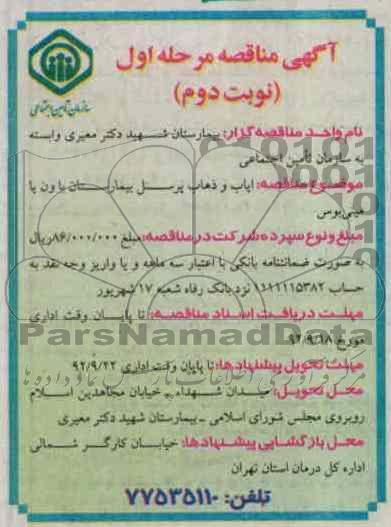 آگهی مناقصه مرحله اول
(نوبت دوم)
سازمان تأمین اجتماعی
نام واحد مناقصه گزار: بیمارستان شهید دکتر معیری وابسته
به سازمان تأمین اجتماعی
موضوع مناقصه: ایاب و ذهاب پرسنل بیمارستان با ون یا
مینی‌بوس
مبلغ و نوع سپرده شرکت در مناقصه: مبلغ ۸۶/۰۰۰/۰۰۰ ریال
به صورت ضمانتنامه بانکی با اعتبار سه ماهه و یا واریز وجه نقد به
حساب ۱۱۱۱۱۱۵۳۸۲ نزد بانک رفاه شعبه ۱۷ شهریور
مهلت دریافت اسناد مناقصه: تا پایان وقت اداری
مورخ ۹۲/۹/۱۸
ParsNamadData
مهلت تحویل پیشنهادها: تا پایان وقت اداری ۹۲/۹/۲۲
محل تحویل: میدان شهداء - خیابان مجاهدین اسلام
روبروی مجلس شورای اسلامی - بیمارستان شهید دکتر معیری
محل بازگشایی پیشنهادها: خیابان کارگر شمالی
اداره کل درمان استان تهران
تلفن: ۷۷۵۳۵۱۱۰